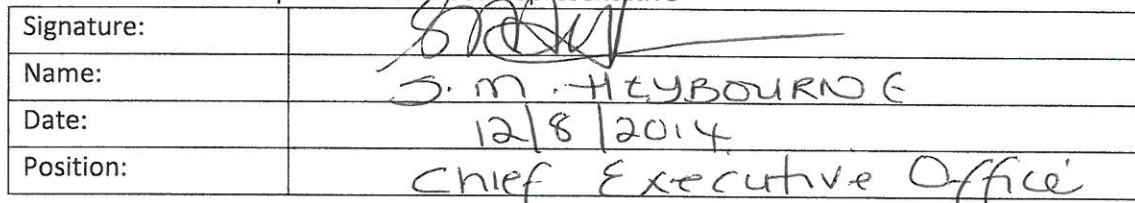 Signature:
Name: S. M. HEYBOURNE
Date: 12/8/2014
Position: Chief Executive Office